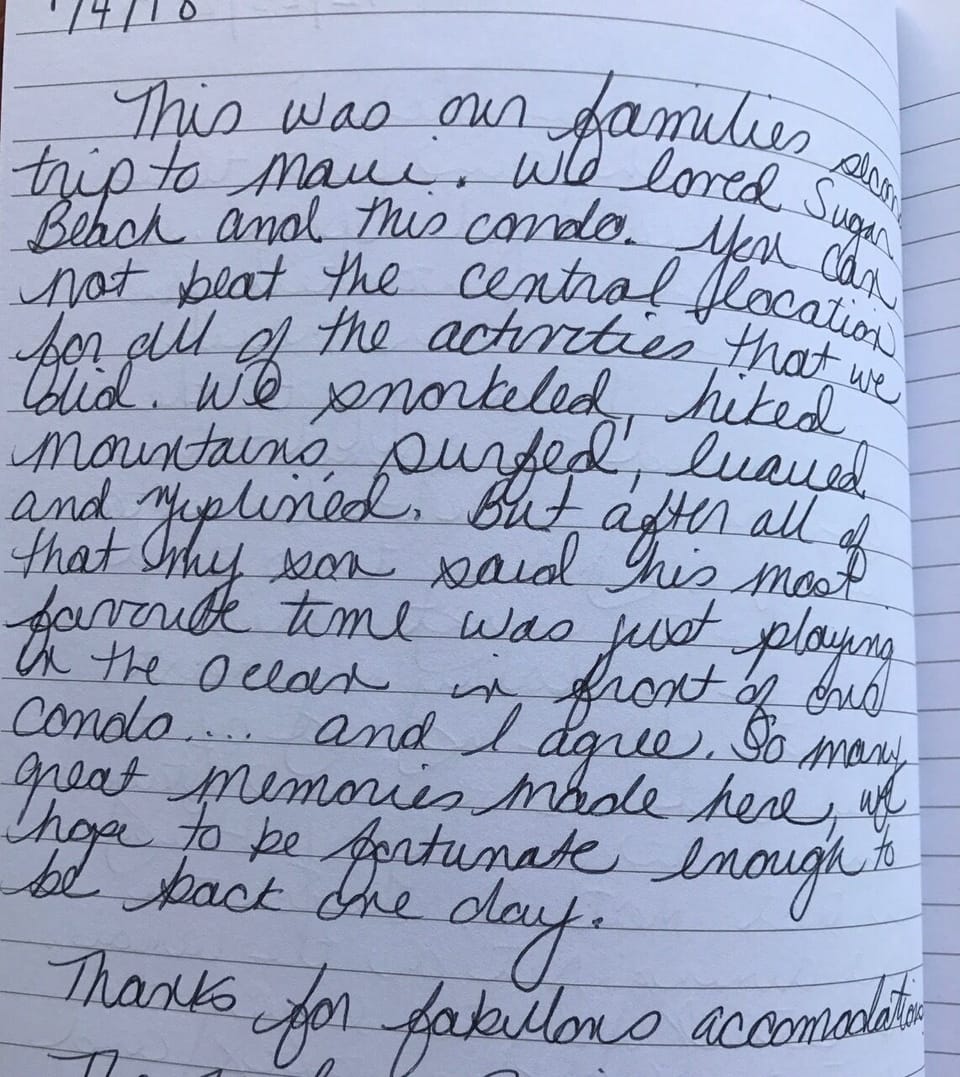 /4/18
This was our families second
trip to Maui. We loved Sugar
Beach and this condo. You can
not beat the central location
for all of the activities that we
did. We snorkeled, hiked
mountains, surfed, luaued
and ziplined. But after all of
that my son said his most
favourite time was just playing
in the ocean in front of our
condo.... and I agree. So many
great memories made here, we
hope to be fortunate enough to
be back one day.
Thanks for fabulous accomodations